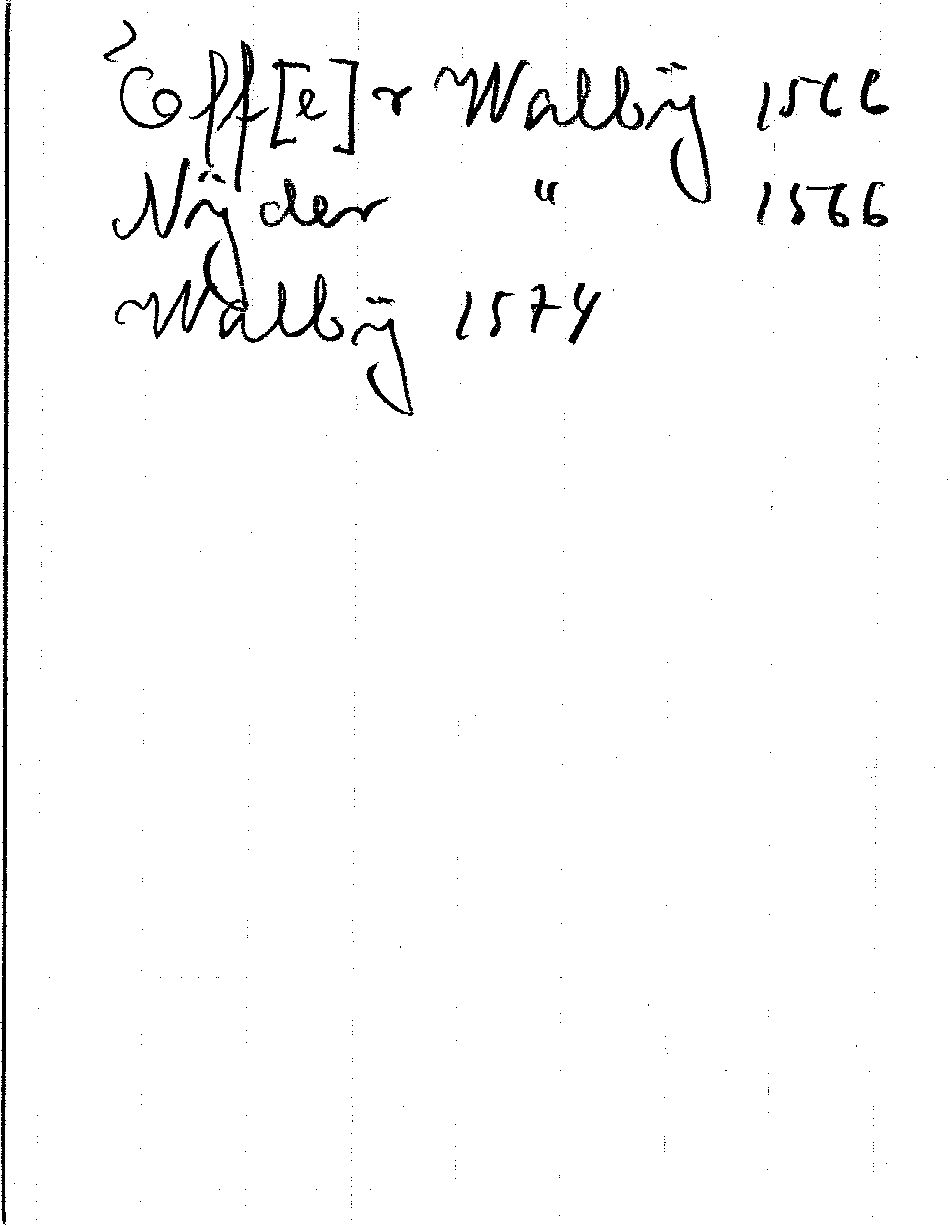 Off[e]r Walbÿ 1566
Nÿder " 1566
Walbÿ 1574